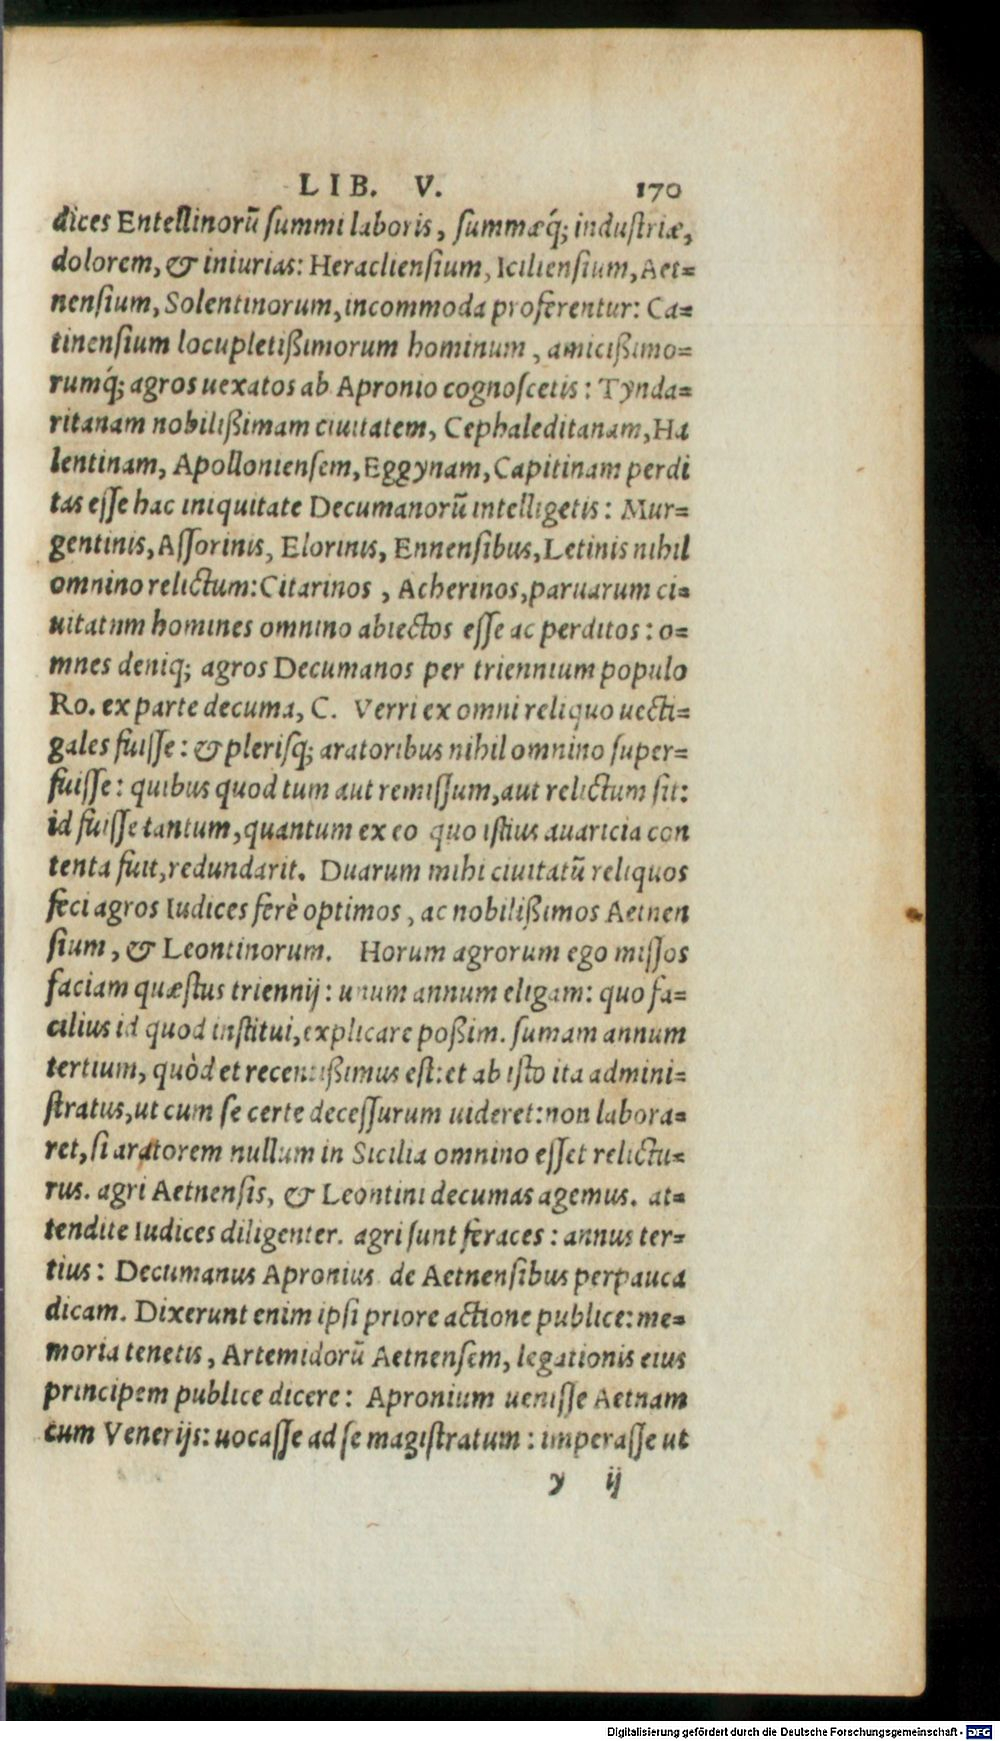 LIB. V. 170
dices Entellinorũ ſummi laboris, ſummæq́; induſtriæ,
dolorem, & iniurias: Heraclienſium, Icilienſium, Aet=
nenſium, Solentinorum, incommoda proferentur: Ca=
tinenſium locupletißimorum hominum, amicißimo=
rumq́; agros uexatos ab Apronio cognoſcetis: Tynda=
ritanam nobilißimam ciuitatem, Cephaleditanam, Ha
lentinam, Apollonienſem, Eggynam, Capitinam perdi
tas eſſe hac iniquitate Decumanorũ intelligetis: Mur=
gentinis, Aſſorinis, Elorinis, Ennenſibus, Letinis nihil
omnino relictum: Citarinos, Acherinos, paruarum ci=
uitatum homines omnino abiectos eſſe ac perditos: o=
mnes deniq; agros Decumanos per triennium populo
Ro. ex parte decuma, C. Verri ex omni reliquo uecti=
gales fuiſſe: & pleriſq; aratoribus nihil omnino ſuper=
fuiſſe: quibus quod tum aut remiſſum, aut relictum ſit:
id fuiſſe tantum, quantum ex eo quo iſtius auaricia con
tenta fuit, redundarit. Duarum mihi ciuitatũ reliquos
feci agros Iudices ferè optimos, ac nobilißimos Aetnen
ſium, & Leontinorum. Horum agrorum ego miſſos
faciam quæſtus triennij: unum annum eligam: quo fa=
cilius id quod inſtitui, explicare poßim. ſumam annum
tertium, quòd et recentißimus est: et ab iſto ita admini=
ſtratus, ut cum ſe certe deceſſurum uideret: non labora=
ret, ſi aratorem nullum in Sicilia omnino eſſet relictu=
rus. agri Aetnenſis, & Leontini decumas agemus. at=
tendite Iudices diligenter. agri ſunt feraces: annus ter=
tius: Decumanus Apronius de Aetnenſibus perpauca
dicam. Dixerunt enim ipſi priore actione publice: me=
moria tenetis, Artemidorũ Aetnenſem, legationis eius
principem publice dicere: Apronium ueniſſe Aetnam
cum Venerijs: uocaſſe ad ſe magiſtratum: imperaſſe ut
y ij
Digitalisierung gefördert durch die Deutsche Forschungsgemeinschaft - DFG